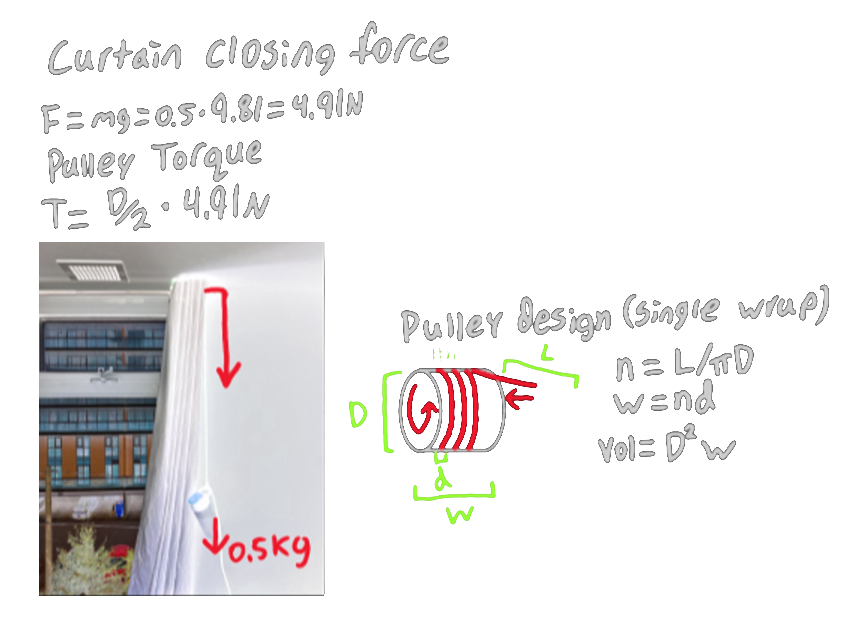 Curtain closing force
F=mg=0.5·9.81=4.91N
Pulley Torque
T= D/2 · 4.91N
0.5Kg
Pulley design (single wrap)
L
D
d
w
n=L/πD
w=nd
Vol=D²w